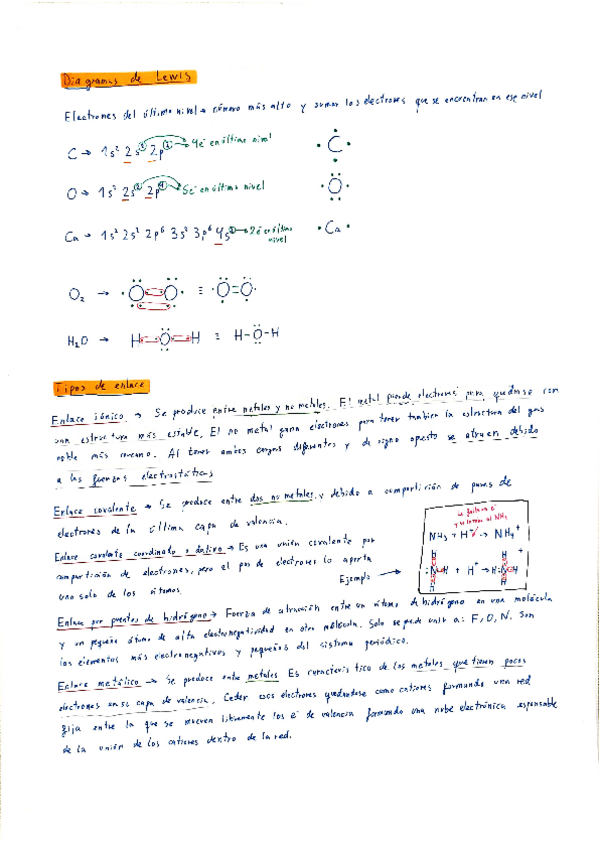 Diagramas de Lewis
Electrones del último nivel → número más alto y sumar los electrones que se encuentran en ese nivel
C → 1s² 2s² 2p² → 4e⁻ en último nivel
·C·
O → 1s² 2s² 2p⁴ → 6e⁻ en último nivel
·O·
Ca → 1s² 2s² 2p⁶ 3s² 3p⁶ 4s² → 2e⁻ en último nivel
·Ca·
O₂ → O O ≡ O=O
H₂O → H O H ≡ H-O-H
Tipos de enlace
Enlace iónico → Se produce entre metales y no metales. El metal pierde electrones para quedarse con
una estructura más estable, El no metal gana electrones para tener también la estructura del gas
noble más cercano. Al tener ambos cargas diferentes y de signo opuesto se atraen debido
a las fuerzas electrostáticas
Enlace covalente → Se produce entre dos no metales y debido a compartición de pares de
electrones de la última capa de valencia.
Enlace covalente coordinado o dativo → Es una unión covalente por
compartición de electrones, pero el par de electrones lo aporta
uno solo de los átomos.
Ejemplo →
NH₃ + H⁺ → NH₄⁺
H
:N H + H⁺ → H:N H
H
Enlace por puentes de hidrógeno → Fuerza de atracción entre un átomo de hidrógeno en una molécula
y un pequeño átomo de alta electronegatividad en otra molécula. Solo se puede unir a: F, O, N. Son
los elementos más electronegativos y pequeños del sistema periódico.
Enlace metálico → Se produce entre metales Es característico de los metales que tienen pocos
electrones en su capa de valencia. Ceder esos electrones quedándose como cationes formando una red
fija entre la que se mueven libremente los e⁻ de valencia formando una nube electrónica responsable
de la unión de los cationes dentro de la red.